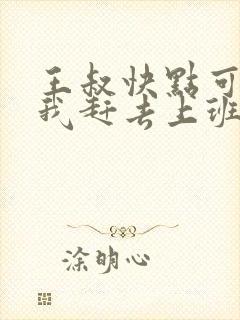 王叔快點可
我赶去上班
涂明心